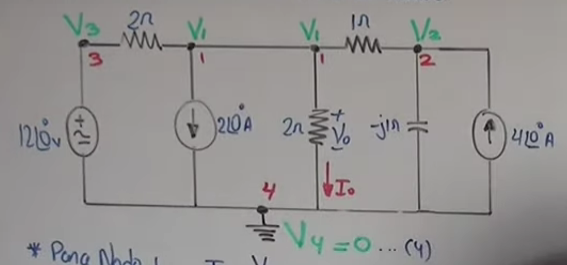 V₃ 2Ω V₁ V₁ 1Ω V₂
3 1 1 2
12∠0° v 2∠0° A 2Ω + V₀ - -j1Ω 4∠0° A
4 I₀
V₄ = 0 ... (4)
* Para Nodo 1